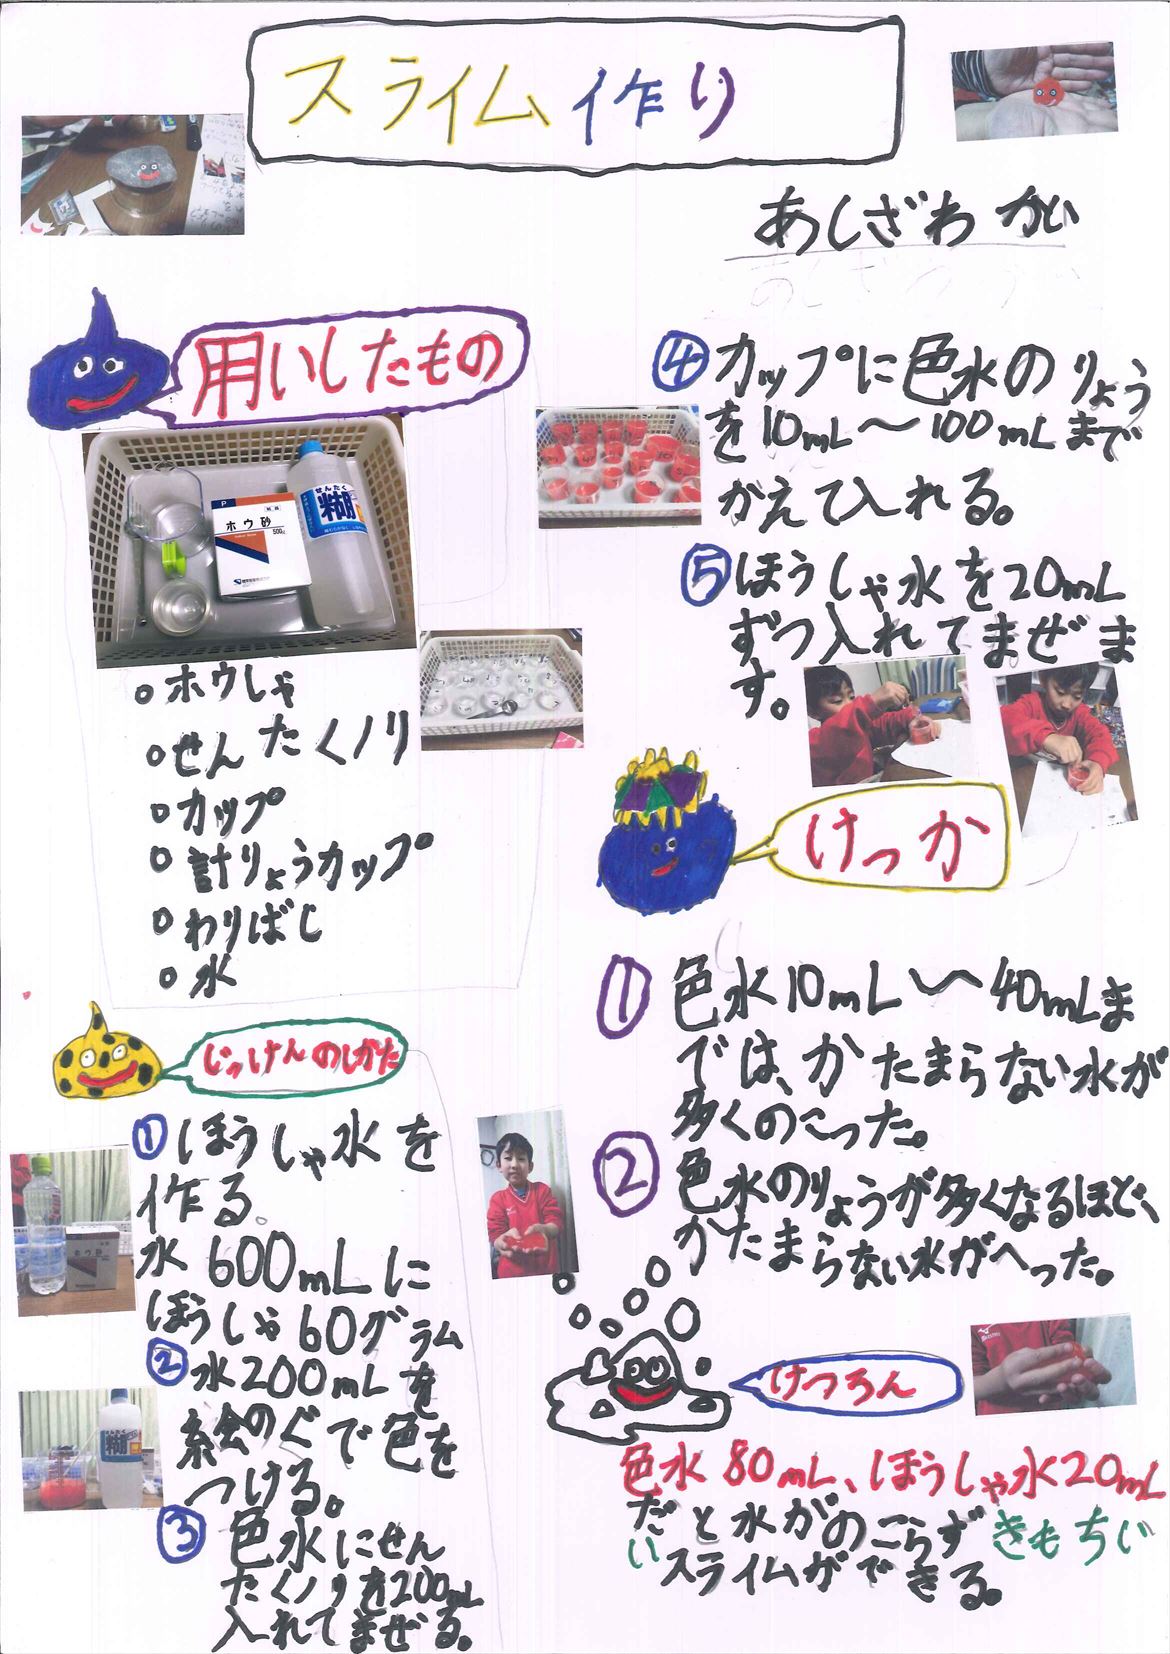 スライム作り
あしざわ かい
用いしたもの
P
ホウ砂
500g
せんたく
糊
○ホウしゃ
○せんたくノリ
○カップ
○計りょうカップ
○わりばし
○水
じっけんのしかた
①ほうしゃ水を
作る。
水600mLに
ほうしゃ60グラム
ホウ砂
②水200mLを
絵のぐで色を
つける。
糊
③色水にせん
たくノリを200mL
入れてまぜる。
④カップに色水のりょう
を10mL〜100mLまで
かえて入れる。
⑤ほうしゃ水を20mL
ずつ入れてまぜま
す。
けっか
①色水10mL〜40mLま
では、かたまらない水が
多くのこった。
②色水のりょうが多くなるほど、
かたまらない水がへった。
けつろん
色水80mL、ほうしゃ水20mL
だと水がのこらずきもちい
いスライムができる。